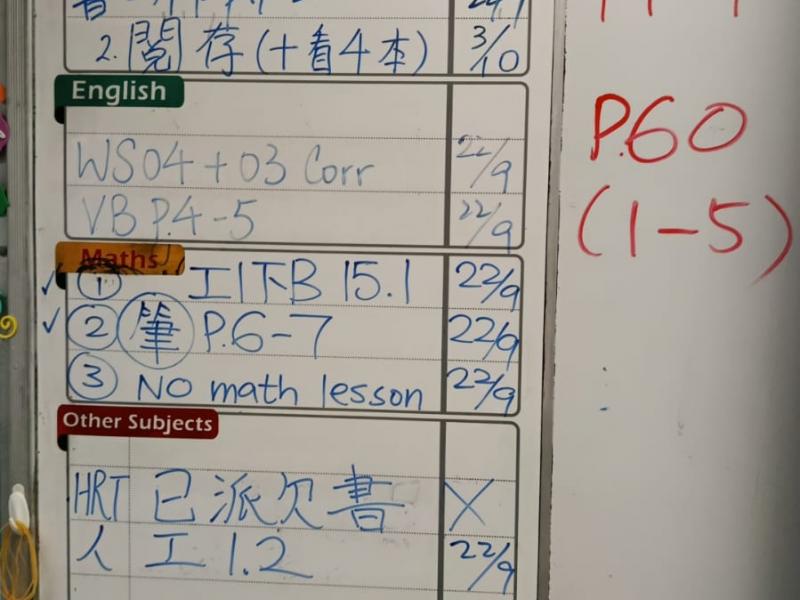 2. 閱存(十看4本) 3/10
English
WS04+03 Corr 22/9
VB P.4-5 22/9
Maths
① 工1下B 15.1 22/9
② 筆 P.6-7 22/9
③ NO math lesson 22/9
Other Subjects
HRT 已派欠書 X
人 工1.2 22/9
P.60
(1-5)